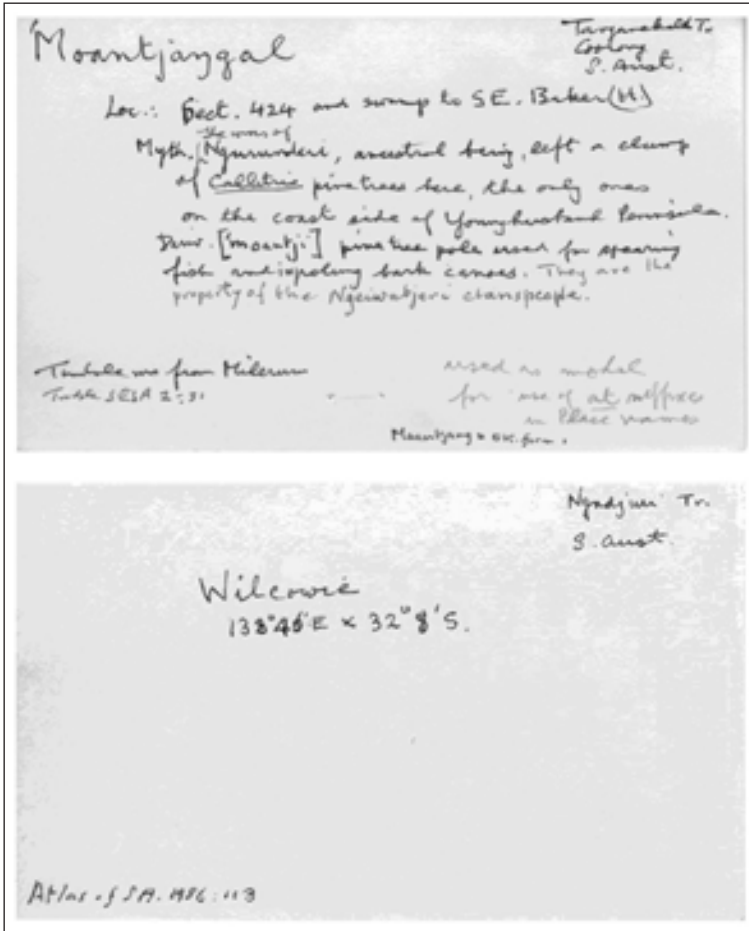 'Moantjaŋgal
Tanganekald Tr.
Coorong
S. Aust.
Loc.: Sect. 424 and swamp to SE. Baker (H.)
the sons of
Myth. Ngurunderi, ancestral being, left a clump
of Callitris pine trees here, the only ones
on the coast side of Younghusband Peninsula.
Deriv. ['moantji] pine tree pole used for spearing
fish and in poling bark canoes. They are the
property of the Ngeiwatjeri clanspeople.
Tindale ms from Milerum
used as model
for use of at suffixes
in Place names
Ngadjuri Tr.
S. Aust.
Wilcowie
S.
Atlas of SA. 1986: 113